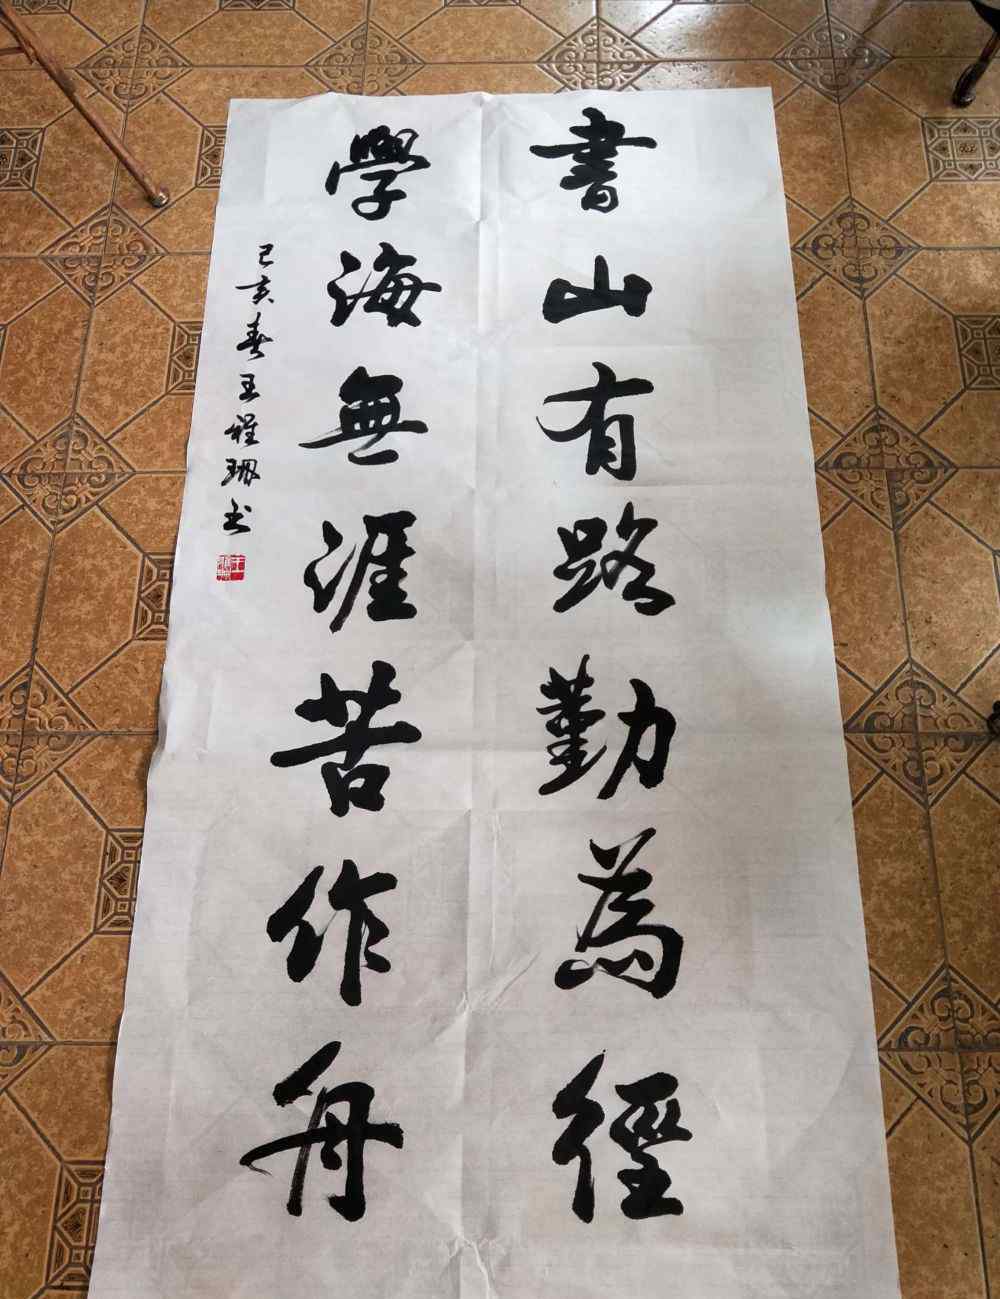 書山有路勤為徑
學海無涯苦作舟
己亥春王程珊书